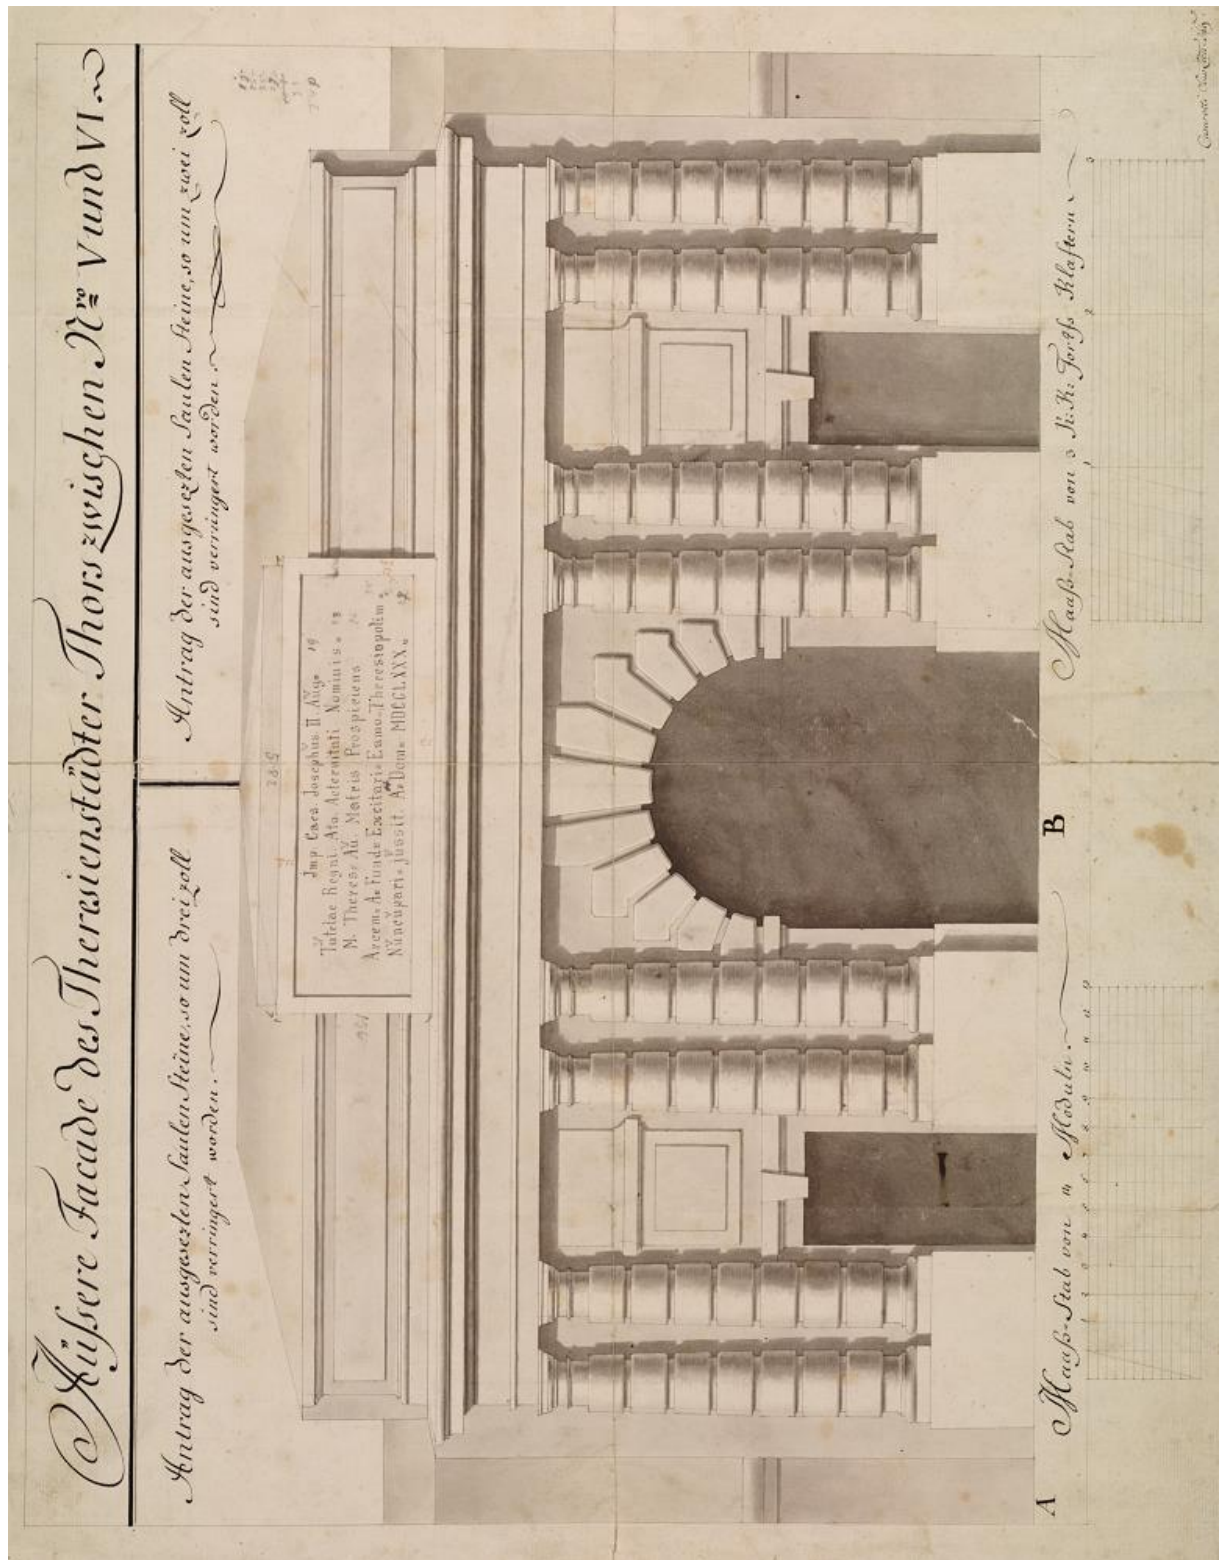 Äüßere Facade des Theresienstädter Thors zwischen Nro V und VI.
Antrag der ausgesezten Saulen Steine, so um drei zoll
sind verringert worden.
Antrag der ausgesezten Saulen Steine, so um zwei zoll
sind verringert worden.
Imp. Caes. Josephus II Aug.
Tutelae Regni. Atq. Aeternitati Nominis.
M. Theres. Au. Matris Prospiciens
Arcem. A. Fund. Excitari. Eamq. Theresiopolim
Nuncupari. jussit. A. Dom. MDCCLXXX.
A
B
Maaß-Stab von Moduln.
1 2 3 4 5 6 7 8 9 10 11 12
Maaß-Stab von 3 K: K: Klaftern.
1 2 3